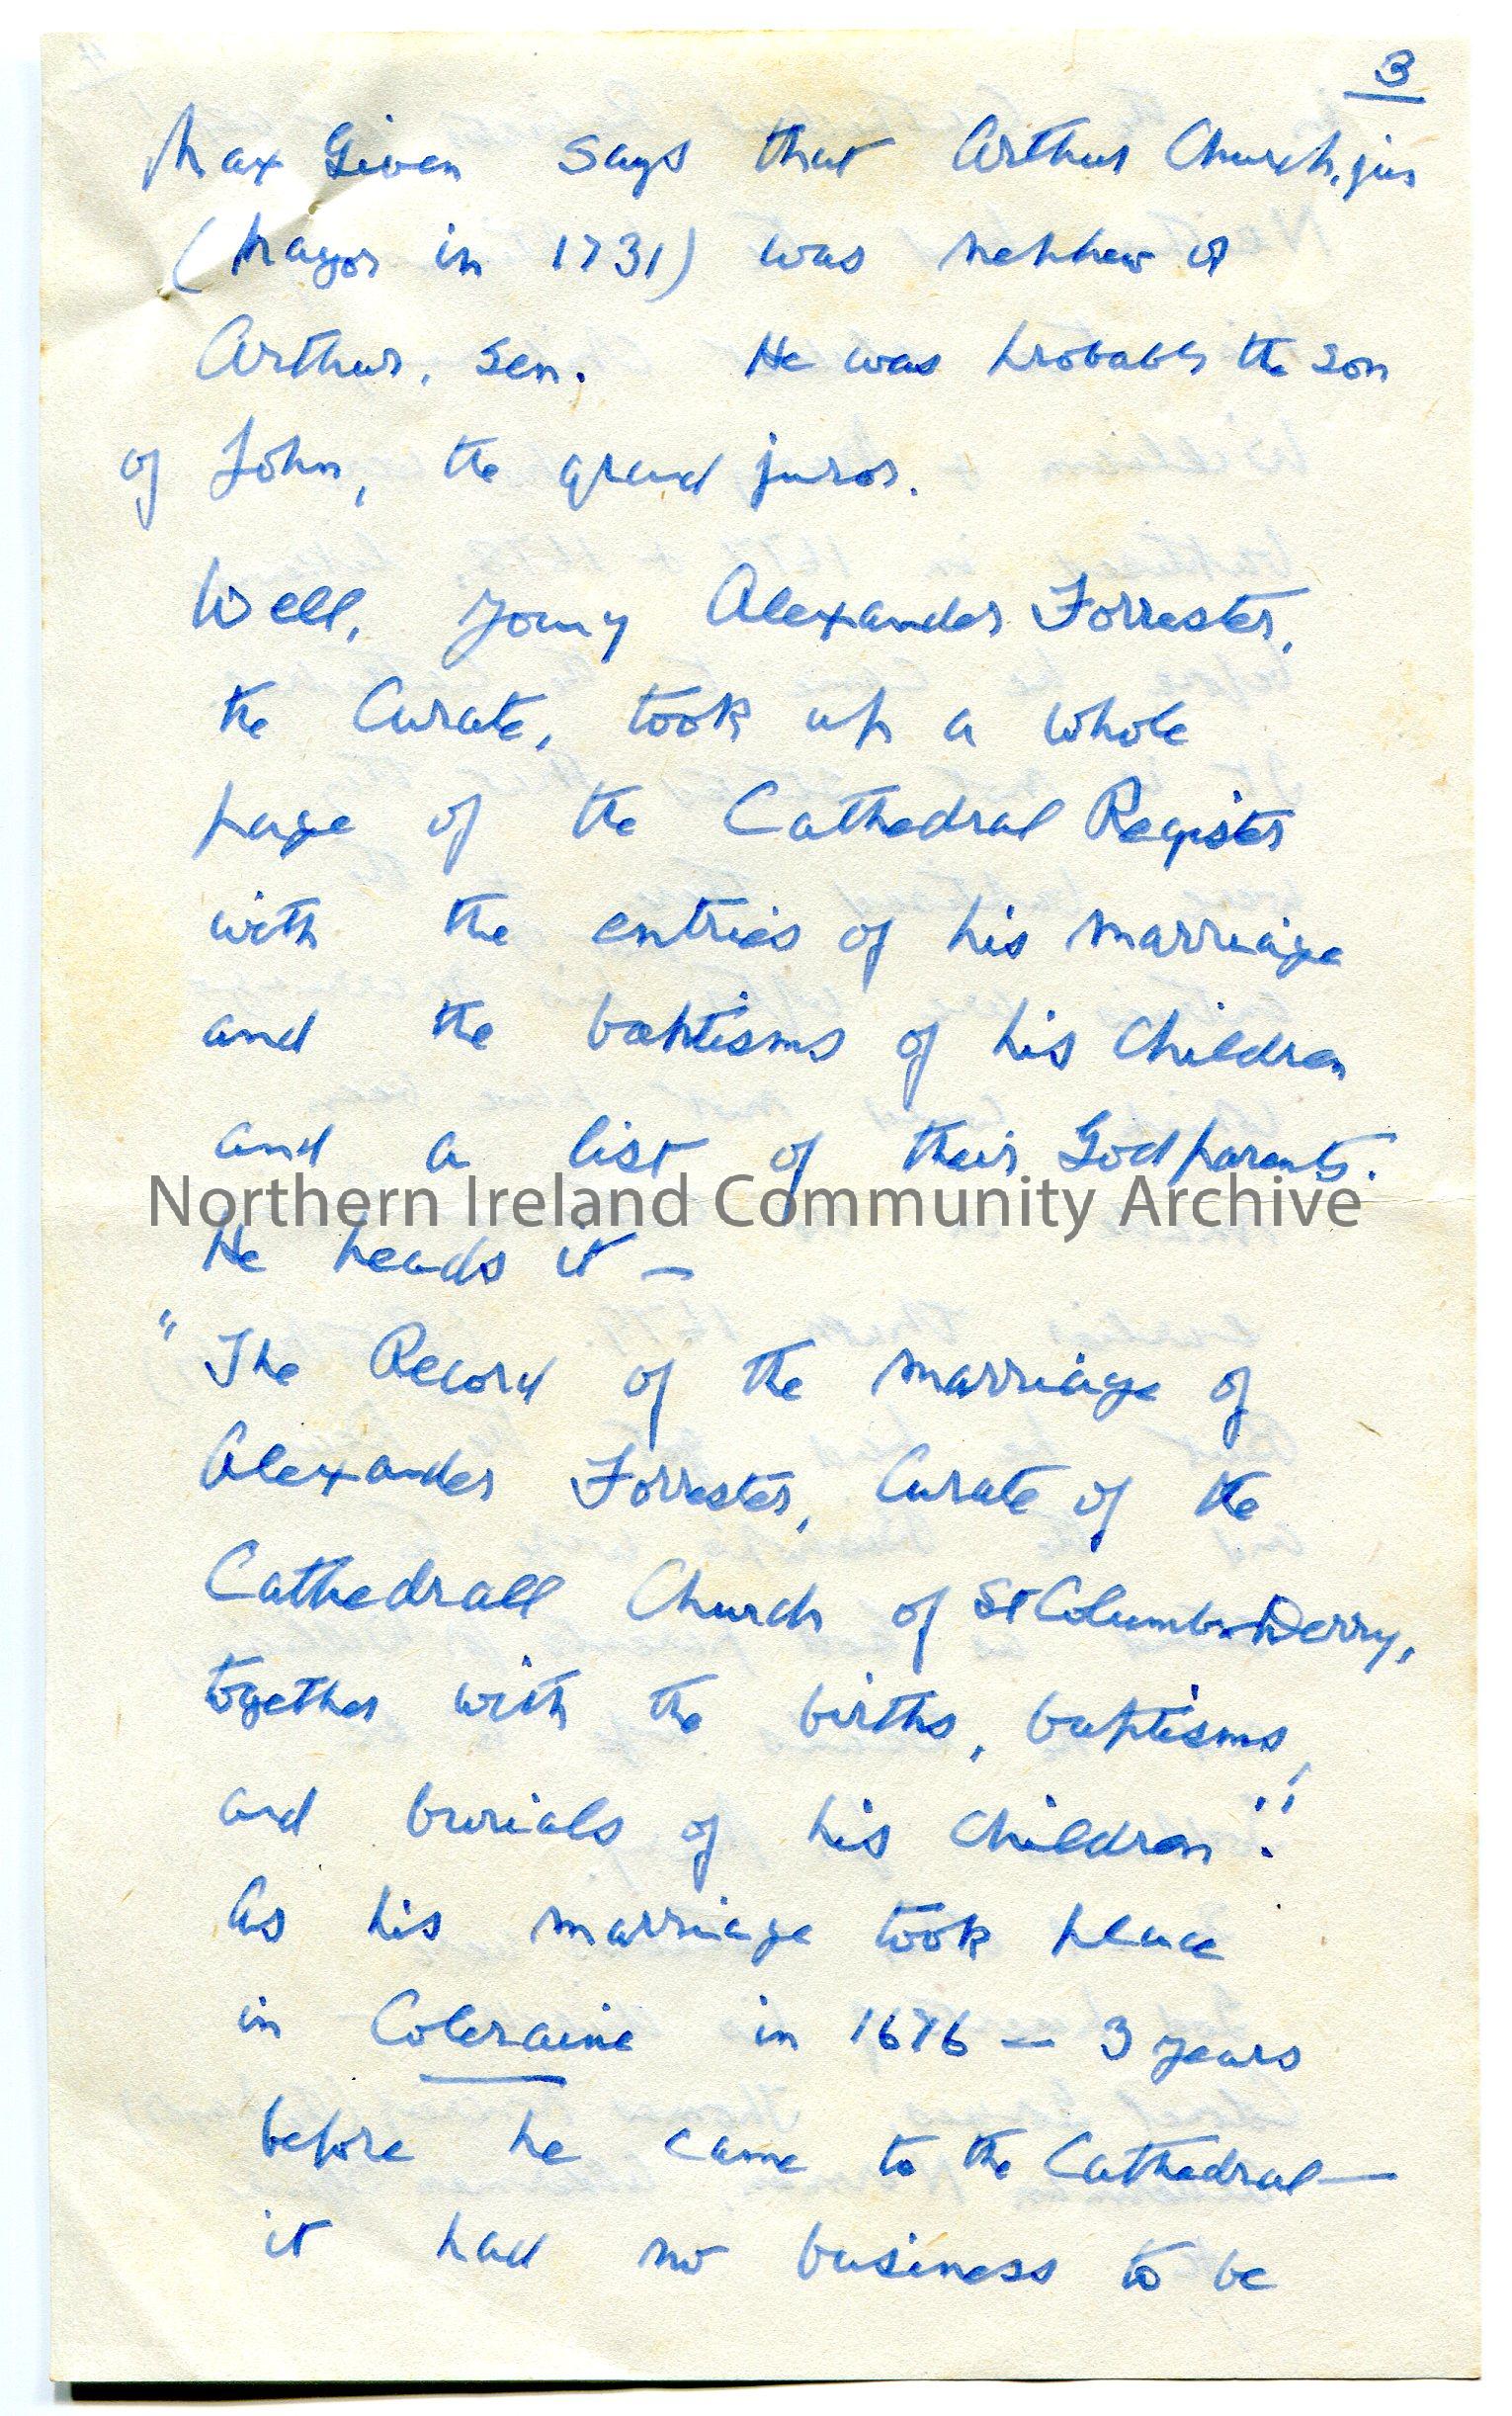 3
Max Given says that Arthur Church, jun
(Mayor in 1731) was nephew of
Arthur, sen. He was probably the son
of John, the grand juror.
Well, young Alexander Forrester,
the Curate, took up a whole
page of the Cathedral Register
with the entries of his marriage
and the baptisms of his children
and a list of their Godparents.
Northern Ireland Community Archive
He heads it –
"The Record of the marriage of
Alexander Forrester, Curate of the
Cathedrall Church of St Columbs Derry,
together with the births, baptisms,
and burials of his children".
As his marriage took place
in Coleraine in 1676 – 3 years
before he came to the Cathedral –
it had no business to be